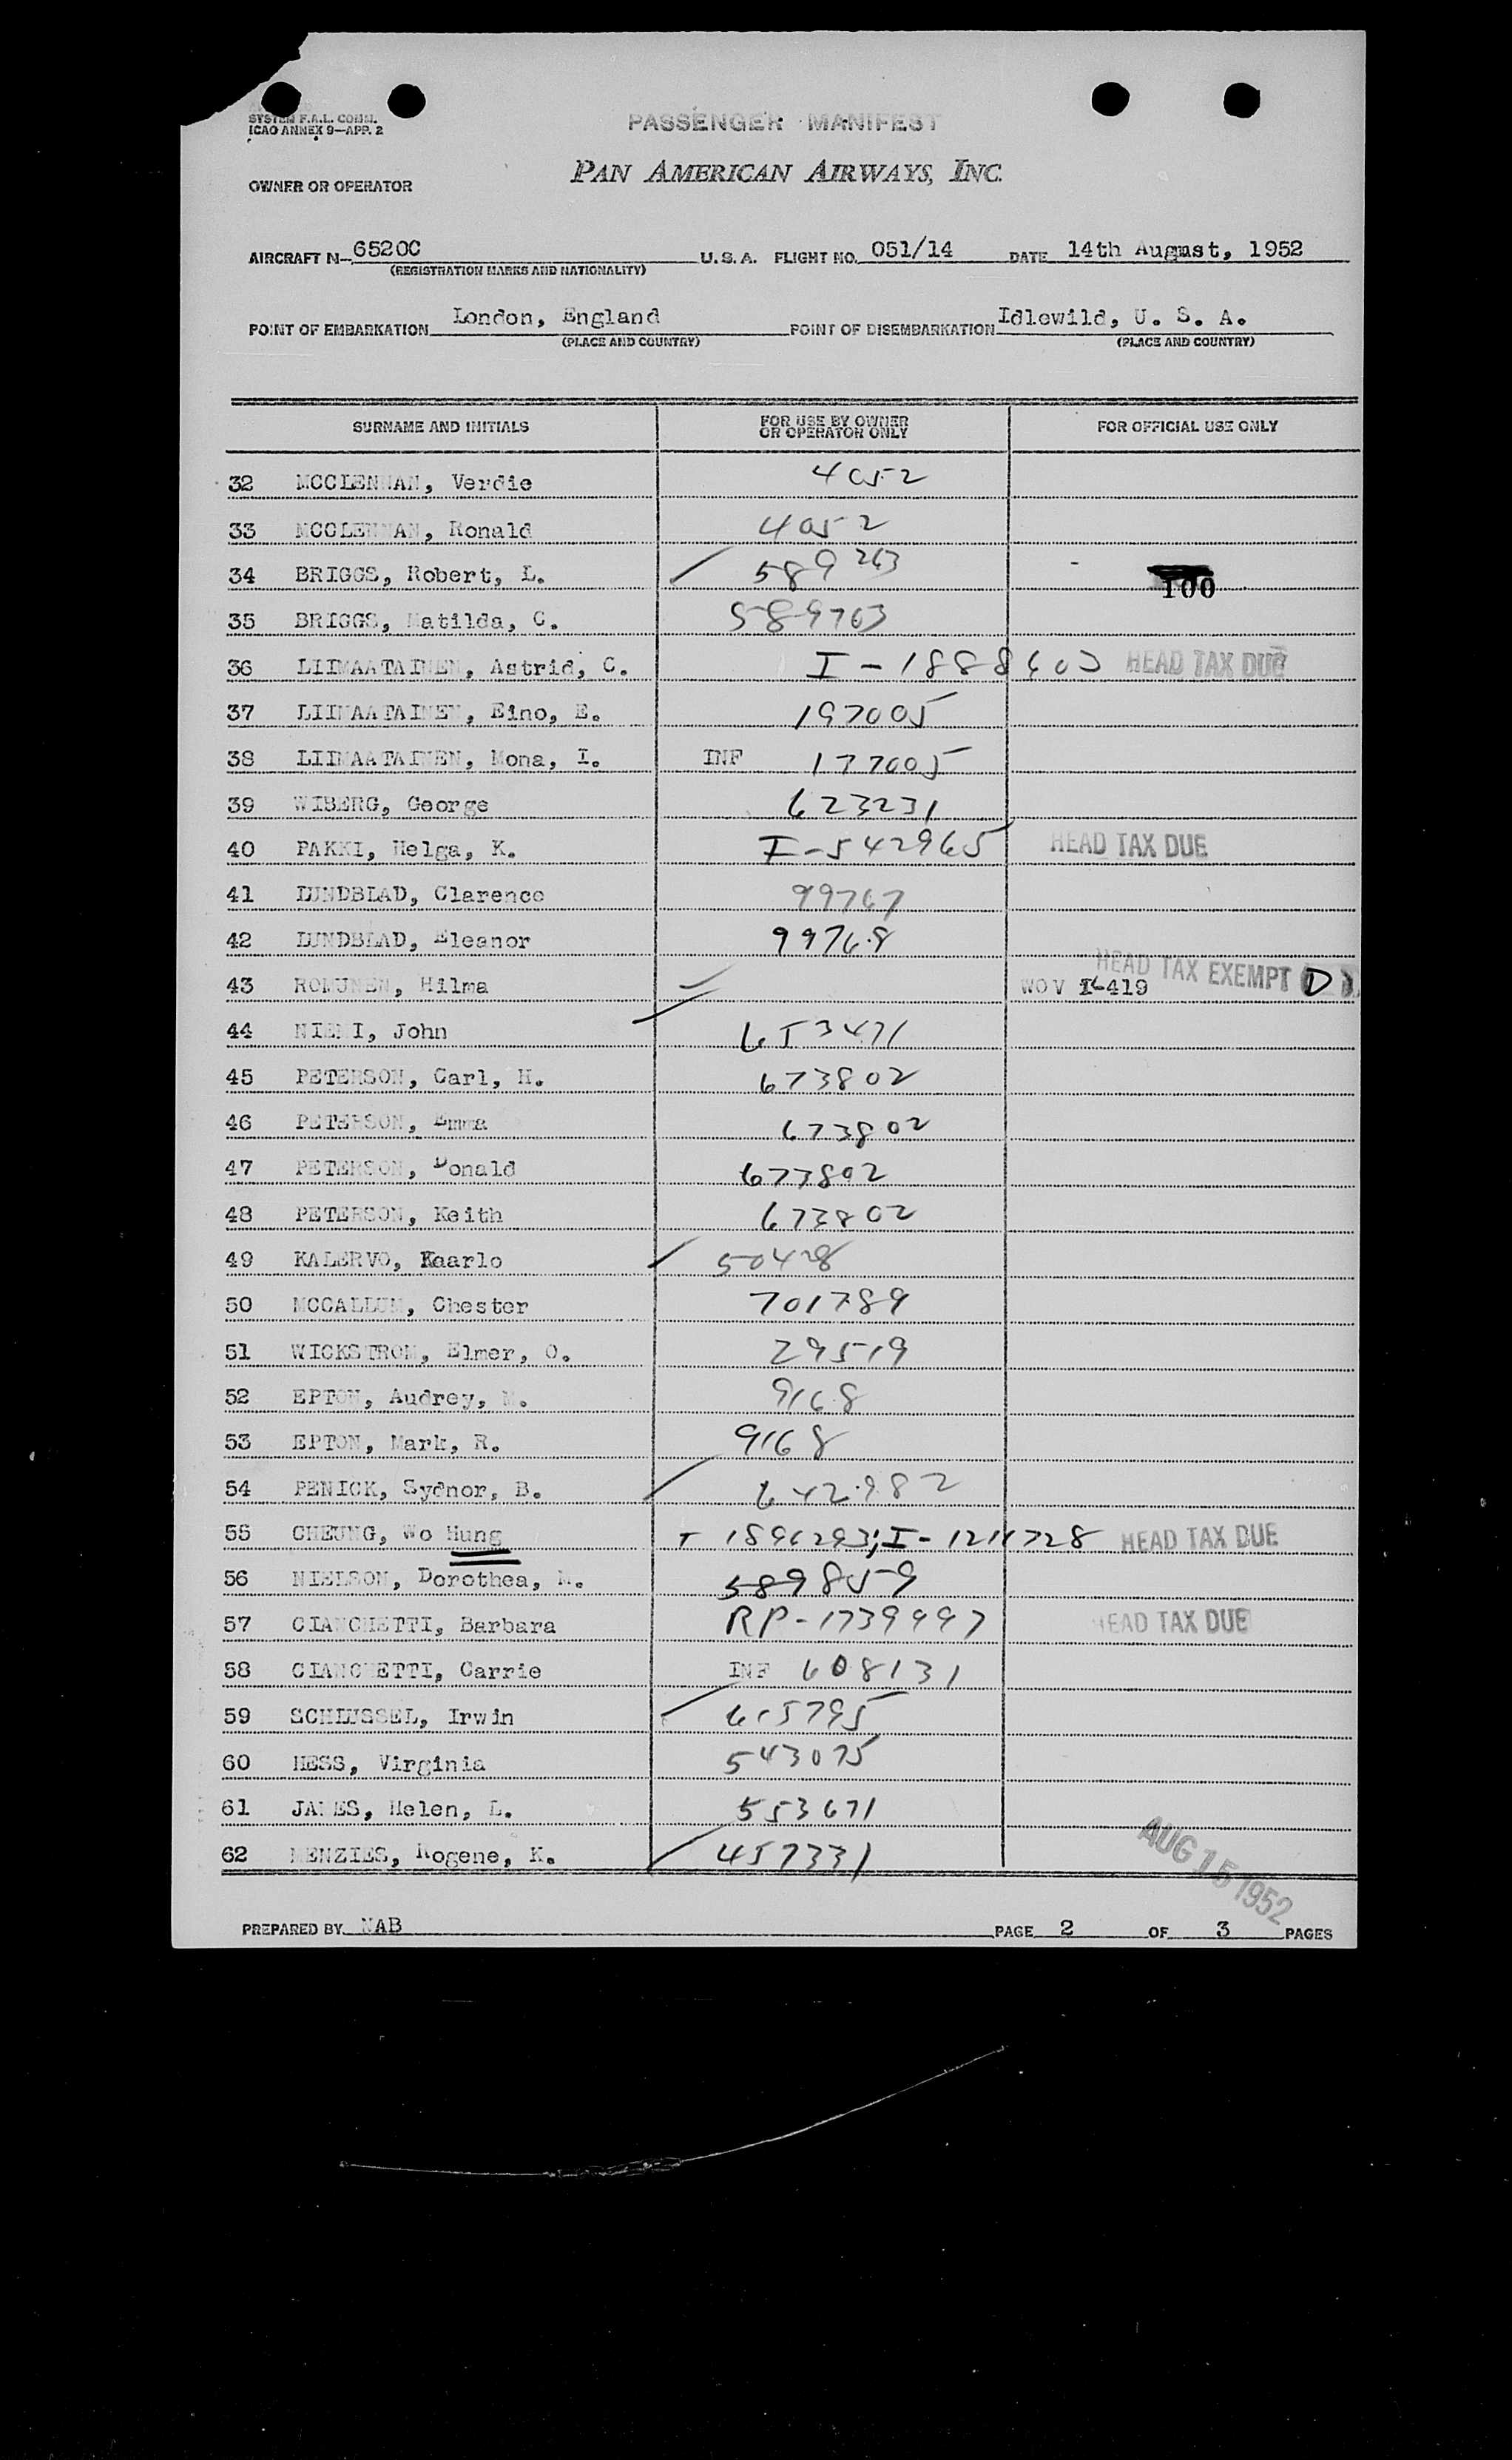 SYSTEM F.A.L. COMM.
ICAO ANNEX 9—APP. 2
PASSENGER MANIFEST
OWNER OR OPERATOR PAN AMERICAN AIRWAYS, INC.
AIRCRAFT N- 6520C U. S. A. FLIGHT NO. 051/14 DATE 14th August, 1952
(REGISTRATION MARKS AND NATIONALITY)
POINT OF EMBARKATION London, England POINT OF DISEMBARKATION Idlewild, U. S. A.
(PLACE AND COUNTRY) (PLACE AND COUNTRY)
SURNAME AND INITIALS FOR USE BY OWNER OR OPERATOR ONLY FOR OFFICIAL USE ONLY
32 MCCLENNAN, Verdie 4052
33 MCCLENNAN, Ronald 4052
34 BRIGGS, Robert, L. 589263 100
35 BRIGGS, Matilda, C. 589763
36 LIIMAATAINEN, Astrid, C. I-1888603 HEAD TAX DUE
37 LIIMAATAINEN, Eino, E. 197005
38 LIIMAATAINEN, Mona, I. INF 177005
39 WIBERG, George 623231
40 PAKKI, Helga, K. I-542965 HEAD TAX DUE
41 LUNDBLAD, Clarence 99767
42 LUNDBLAD, Eleanor 99768
43 ROMUNEN, Hilma WOV I-419 HEAD TAX EXEMPT (D)
44 NIEMI, John 653471
45 PETERSON, Carl, H. 673802
46 PETERSON, Emma 673802
47 PETERSON, Donald 673802
48 PETERSON, Keith 673802
49 KALERVO, Kaarlo 50428
50 MCCALLUM, Chester 701789
51 WICKSTROM, Elmer, O. 29519
52 EPTON, Audrey, M. 9168
53 EPTON, Mark, R. 9168
54 PENICK, Sydnor, B. 642982
55 CHEUNG, Wo Hung T 1896293; I-1211728 HEAD TAX DUE
56 NIELSON, Dorothea, M. 589859
57 CIANCHETTI, Barbara RP-1739997 HEAD TAX DUE
58 CIANCHETTI, Carrie INF 608131
59 SCHLUSSEL, Irwin 615795
60 HESS, Virginia 543075
61 JAMES, Helen, L. 553671
62 MENZIES, Rogene, K. 457331
AUG 15 1952
PREPARED BY NAB PAGE 2 OF 3 PAGES